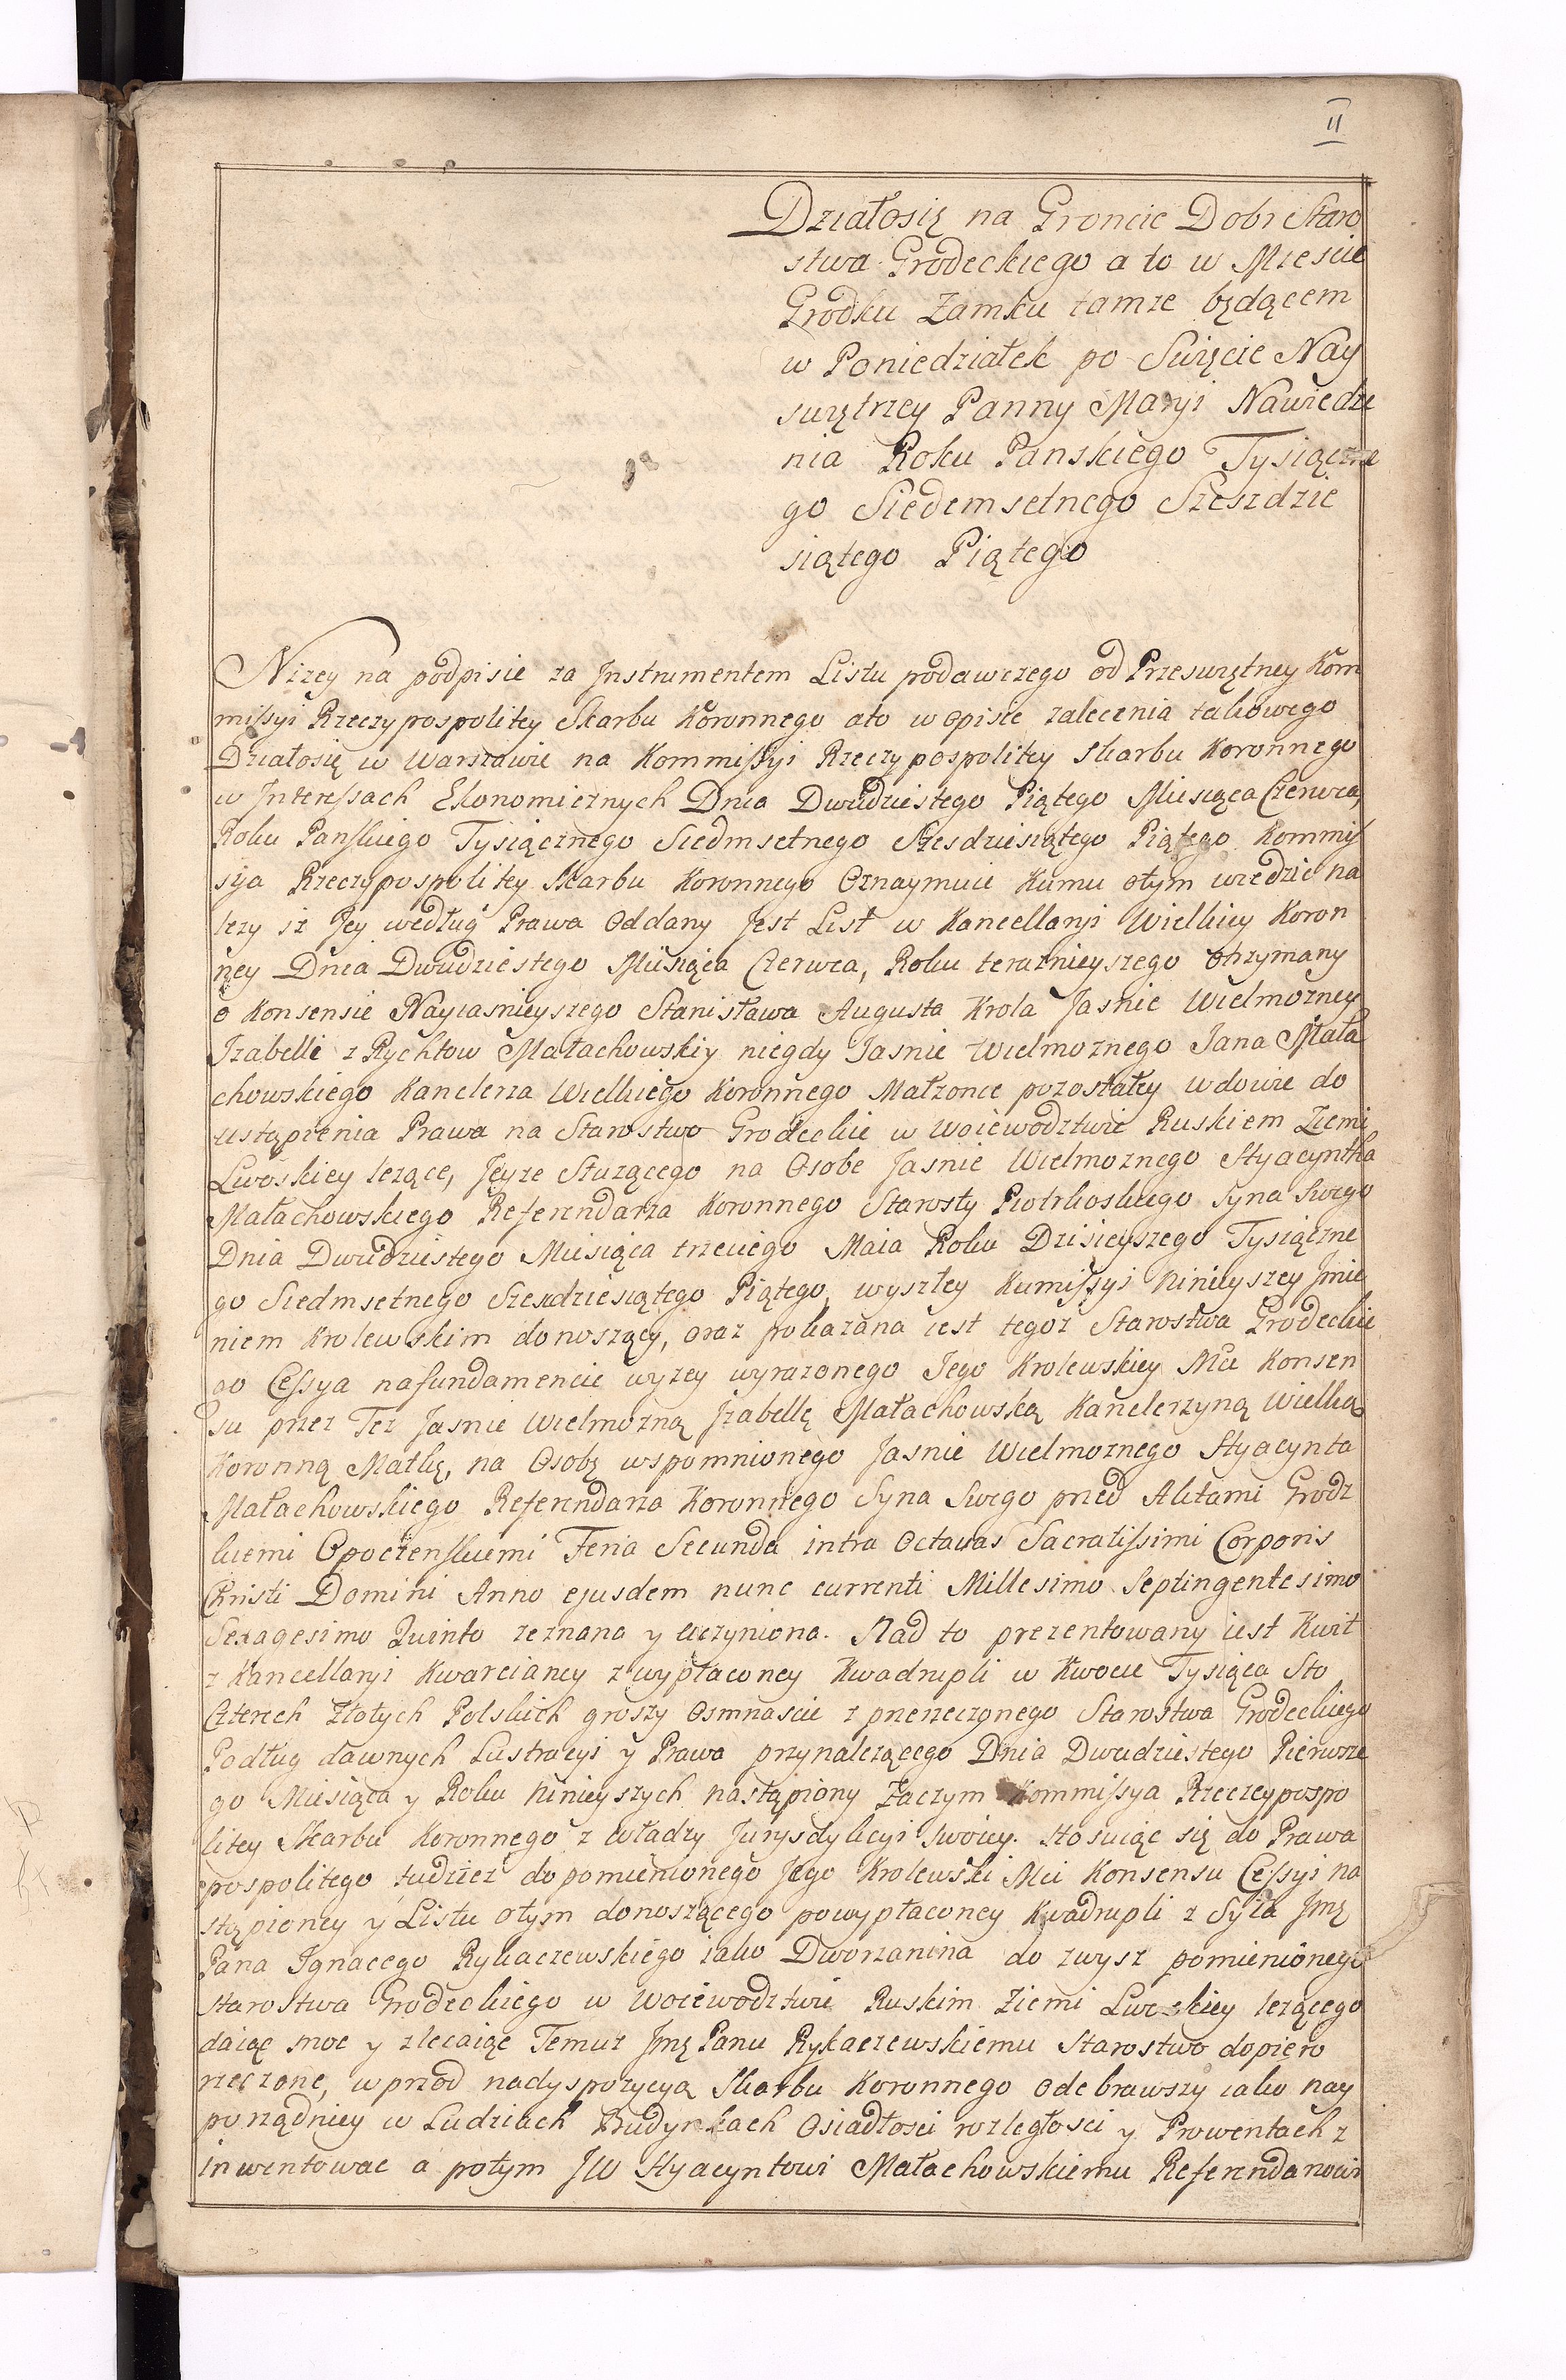 II
Działosię na Groncie Dobr Staro
stwa Grodeckiego a to w Miescie
Grodku Zamku tamze będącem
w Poniedziałek po Swięcie Nay
swiętrzey Panny Maryi Nawiedze
nia Roku Panskiego Tysiączne
go Siedemsetnego Szeszdzie
siątego Piątego
Nizey na podpisie za Jnstrumentem Listu podawczego od Przeswiętney Kom
missyi Rzeczypospolitey Skarbu Koronnego ato w opisie zalecenia takowego
Działosię w Warszawie na Kommissyi Rzeczypospolitey Skarbu Koronnego
w Jnteressach Ekonomicznych Dnia Dwudziestego Piątego Miesiąca Czerwca,
Roku Panskiego Tysiącznego Siedmsetnego Szesdziesiątego Piątego Kommis
sya Rzeczypospolitey Skarbu Koronnego Oznaymuie Kumu otym wiedzic na
lezy iz Jey według Prawa Oddany Jest List w Kancellaryi Wielkiey Koron
ney Dnia Dwudziestego Miesiąca Czerwca, Roku teraznieyszego otrzymany
o Konsensie Nayiasnieyszego Stanisława Augusta Krola Jasnie Wielmozney
Jzabelli z Rychtow Małachowskiy niegdy Jasnie Wielmoznego Jana Mała
chowskiego Kanclerza Wielkiego Koronnego Małzonce pozostałey wdowie do
ustąpienia Prawa na Starostwo Grodeckie w Woiewodztwie Ruskiem Ziemi
Lwoskiey lezące, Jeyze Słuzącego na Osobe Jasnie Wielmoznego Hyacyntha
Małachowskiego Referendarza Koronnego Starosty Piotrkoskiego Syna Swego
Dnia Dwudziestego Miesiąca trzeciego Maia Roku Dzisieyszego Tysiączne
go Siedmsetnego Szesdziesiątego Piątego, wyszłey Kumissyi Ninieyszey Jmie
niem Krolewskim donoszący, oraz pokazana iest tegoz Starostwa Grodeckie
go Cessya nafundamencie wyzey wyrazonego Jego Krolewskiey Mci Konsen
su przez Tez Jasnie Wielmozną Jzabellę Małachowską Kanclerzyną Wielką
Koronną Matkę, na Osobę wspomnionego Jasnie Wielmoznego Hyacynta
Małachowskiego Referendarza Koronnego Syna Swego przed Aktami Grodz
kiemi Opoczenskiemi Feria Secunda intra Octavas Sacratissimi Corporis
Christi Domini Anno ejusdem nunc currenti Millesimo Septingentesimo
Sexagesimo Quinto zeznana y uczyniona. Nad to prezentowany iest Kwit
z Kancellaryi Kwarcianey z wypłaconey Kwadrupli w Kwocie Tysiąca Sto
Czterech Złotych Polskich groszy Osmnascie z przerzeczonego Starostwa Grodeckiego
Podług dawnych Lustracyi y Prawa przynalezącego Dnia Dwudziestego Pierwsze
go Miesiąca y Roku Ninieyszych nastąpiony Zaczym Kommissya Rzeczeypospo
litey Skarbu Koronnego z władzy Jurysdykcyi swoiey. Stosuiąc się do Prawa
pospolitego tudziez dopomienionego Jego Krolewski Mci Konsensu Cessyi na
stąpioney y Listu otym donoszącego powypłaconey Kwadrupli z Syła Jmę
Pana Jgnacego Rykaczewskiego iako Dworzanina do zwysz pomienionego
Starostwa Grodeckiego w Woiewodztwie Ruskim Ziemi Lwoskiey lezącego
daiąc moc y zlecaiąc Temuz Jmę Panu Rykaczewskiemu Starostwo dopiero
rzeczone, wprzod nadyspozycyą Skarbu Koronnego Odebrawszy iako nay
porządniey w Ludziach Budynkach Osiadłosci rozległosci y Prowentach z
inwentowac a potym JW Hyacyntowi Małachowskiemu Referendarzowi